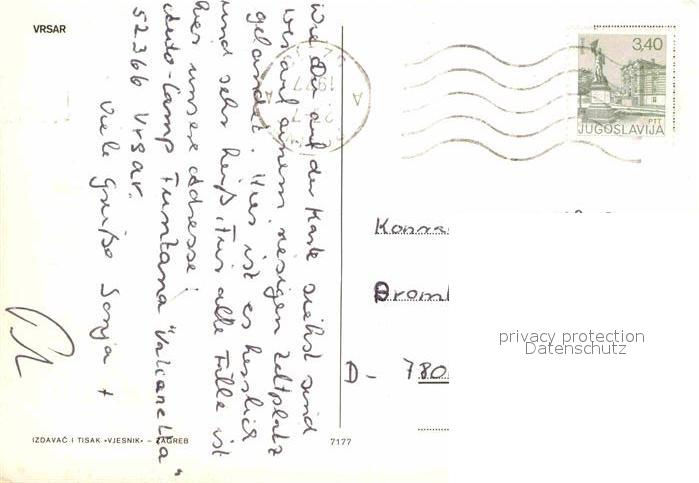 VRSAR
Wie Du auf der Karte siehst sind
wir auf einem riesigen Zeltplatz
gelandet. Hier ist es herrlich
und sehr heiß. Für alle Fälle ist
hier unsere Adresse:
Auto-Camp Funtana "Valkanella"
52366 Vrsar.
Viele Grüße Sonja +
IZDAVAČ I TISAK «VJESNIK» – ZAGREB
7177
1977
23-7
A
A
3,40
PTT
JUGOSLAVIJA
D- 780
privacy protection
Datenschutz